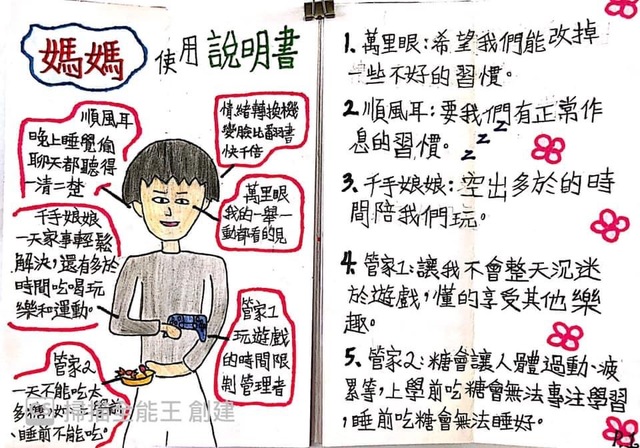 媽媽使用說明書
順風耳
晚上睡覺偷
聊天都聽得
一清二楚
情緒轉換機
變臉比翻書
快千倍
萬里眼
我的一舉一
動都看的見
千手娘娘
一天家事輕鬆
解決，還有多於
時間吃喝玩
樂和運動。
管家1
玩遊戲
的時間限
制管理者
管家2
一天不能吃太
睡前不能吃。
掃描全能王 創建
1.萬里眼:希望我們能改掉
一些不好的習慣。
2.順風耳:要我們有正常作
息的習慣。
z z z
3.千手娘娘:空出多於的時
間陪我們玩。
4.管家1:讓我不會整天沉迷
於遊戲，懂的享受其他樂
趣。
5.管家2:糖會讓人體過動、疲
累等，上學前吃糖會無法專注學習
，睡前吃糖會無法睡好。